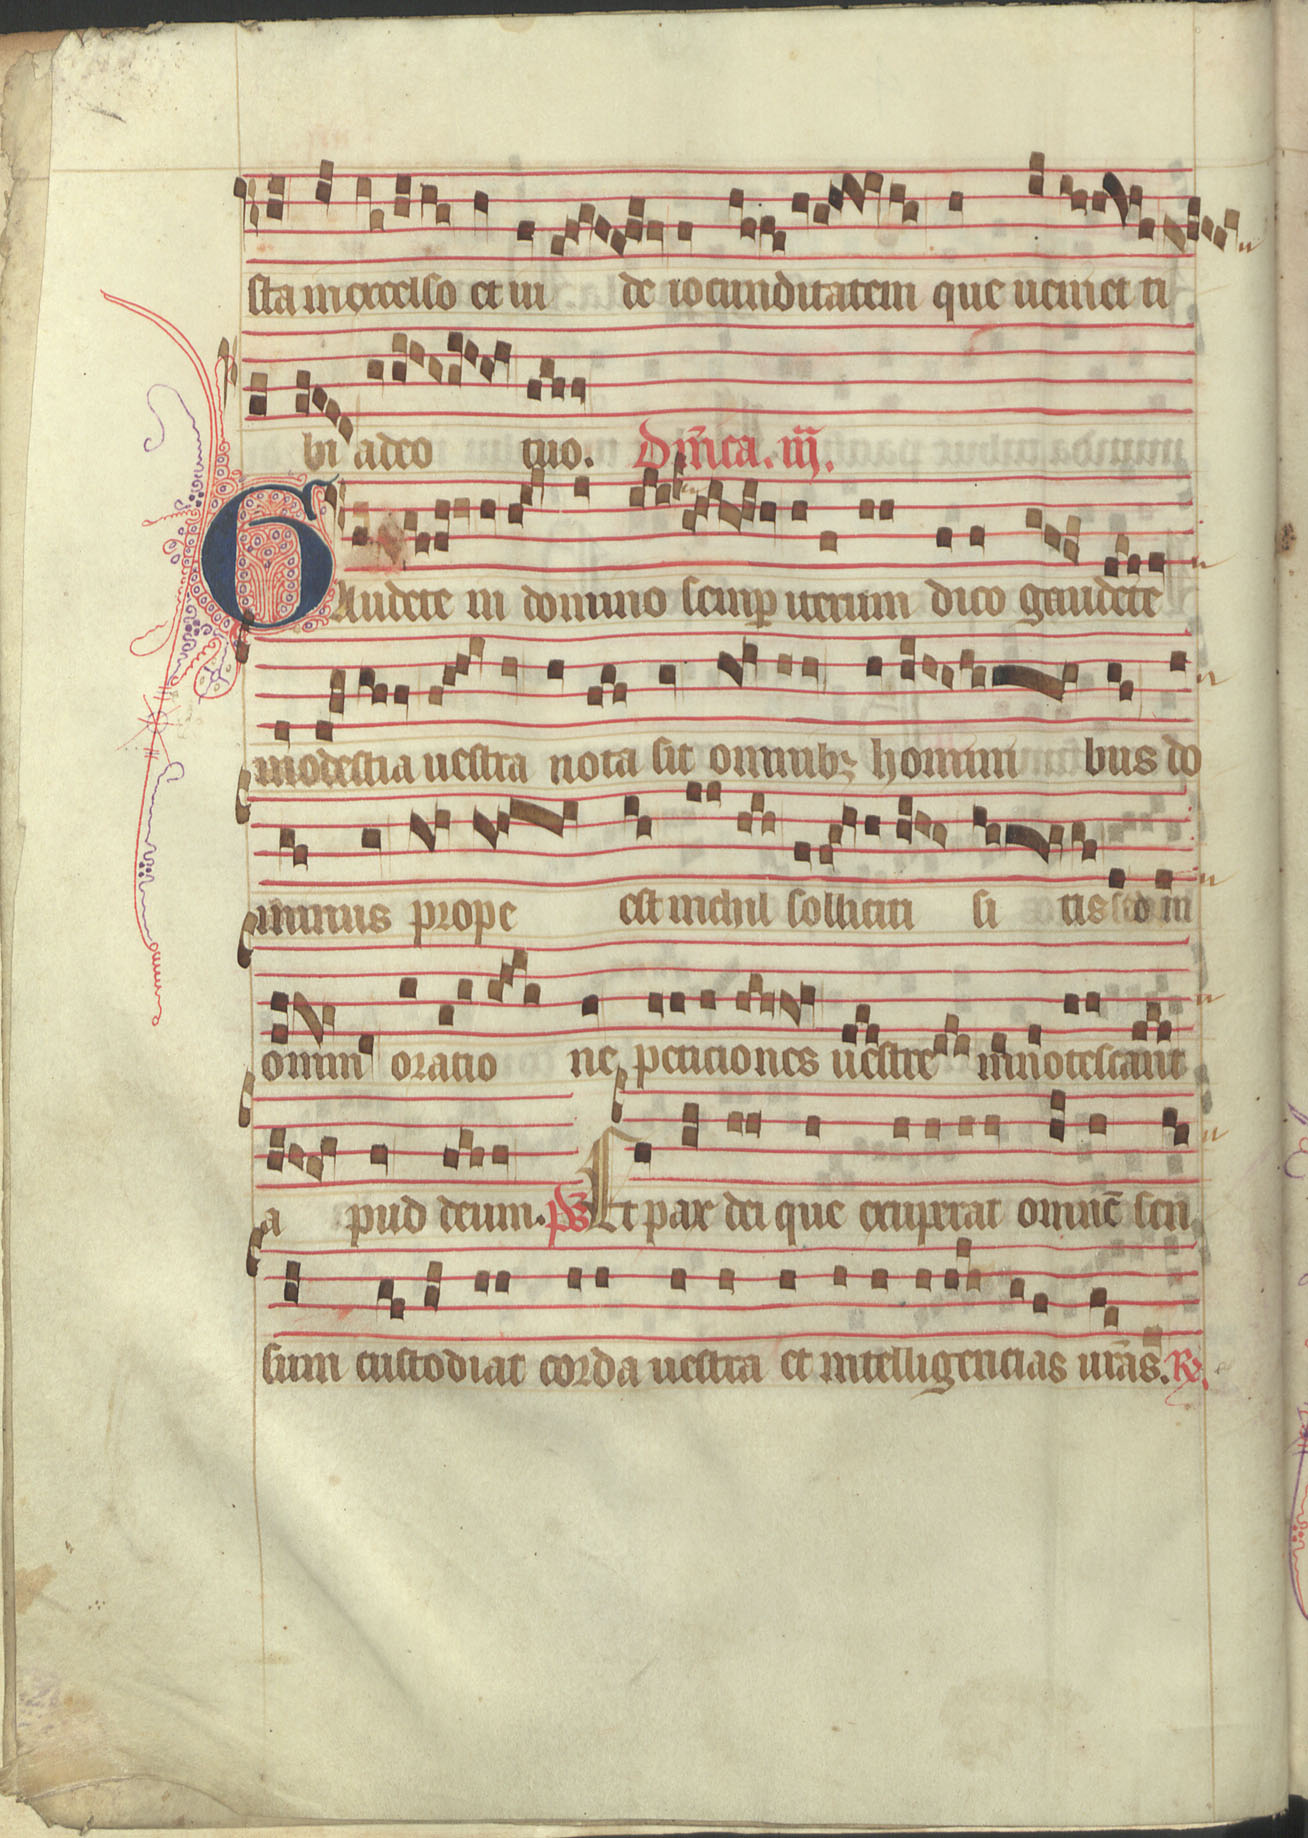 sta inexcelso et ui de iocunditatem que ueniet ti
bi adeo tuo. Dn̄ica. iij.
GAudete in domino semp iterum dico gaudete
modestia uestra nota sit omnibꝫ homini bus do
minus prope est nichil solliciti si tis sed in
omni oratio ne peticiones uestre innotescant
a pud deum. ps Et pax dei que exuperat omnē sen
sum custodiat corda uestra et intelligencias ur̄as. R℣.